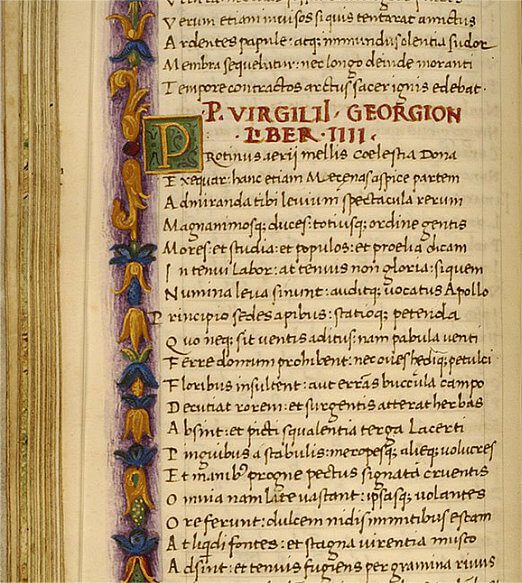 Verum etiam invisos si quis tentarat amictus
Ardentes papule: atq; immundus olentia sudor
Membra sequebatur: nec longo deinde moranti
Tempore contractos artus sacer ignis edebat.
P. VIRGILII · GEORGION
· LIBER · IIII ·
PRotinus aerii mellis coelestia Dona
Exequar: hanc etiam Mecenas aspice partem
Admiranda tibi levium spectacula rerum
Magnanimosq; duces: totiusq; ordine gentis
Mores: et studia: et populos: et proelia dicam
In tenui Labor: at tenuis non gloria: si quem
Numina leva sinunt: auditq; vocatus Apollo
Principio sedes apibus: statioq; petenda
Quo neq; sit ventis aditus: nam pabula venti
Ferre domum prohibent: nec oves hediq; petulci
Floribus insultent: aut errãs buccula campo
Decutiat rorem: et surgentis atterat herbas
Absint: et picti squalentia terga Lacerti
Pinguibus a stabulis: meropesq; alieq; volucres
Et manib⁹ progne pectus signata cruentis
Omnia nam late vastant: ipsasq; volantes
Ore ferunt: dulcem nidis immitibus escam
At liqdi fontes: et stagna virentia musco
Adsint: et tenuis fugiens per gramina rivus